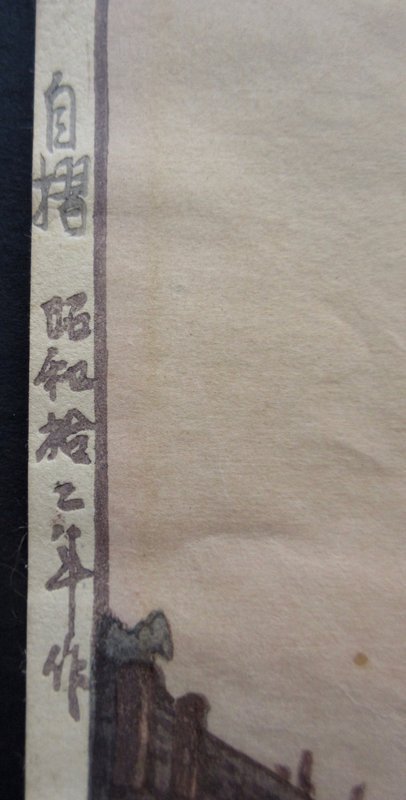 自摺
昭和拾二年作